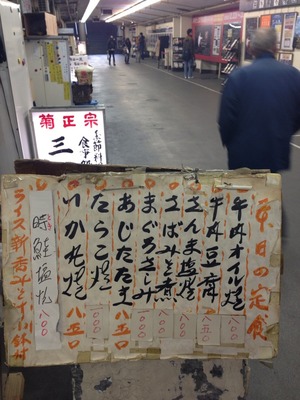 菊正宗
三
食事処
本日の定食
牛肉オイル焼 八〇〇
牛肉豆腐 八五〇
さんま塩焼 八〇〇
さばみそ煮 八〇〇
まぐろさしみ 一〇〇〇
あじたたき 八五〇
たらこ焼 一〇〇〇
いか丸焼 八五〇
時鮭塩焼 八〇〇
ライス新香みそ汁小鉢付